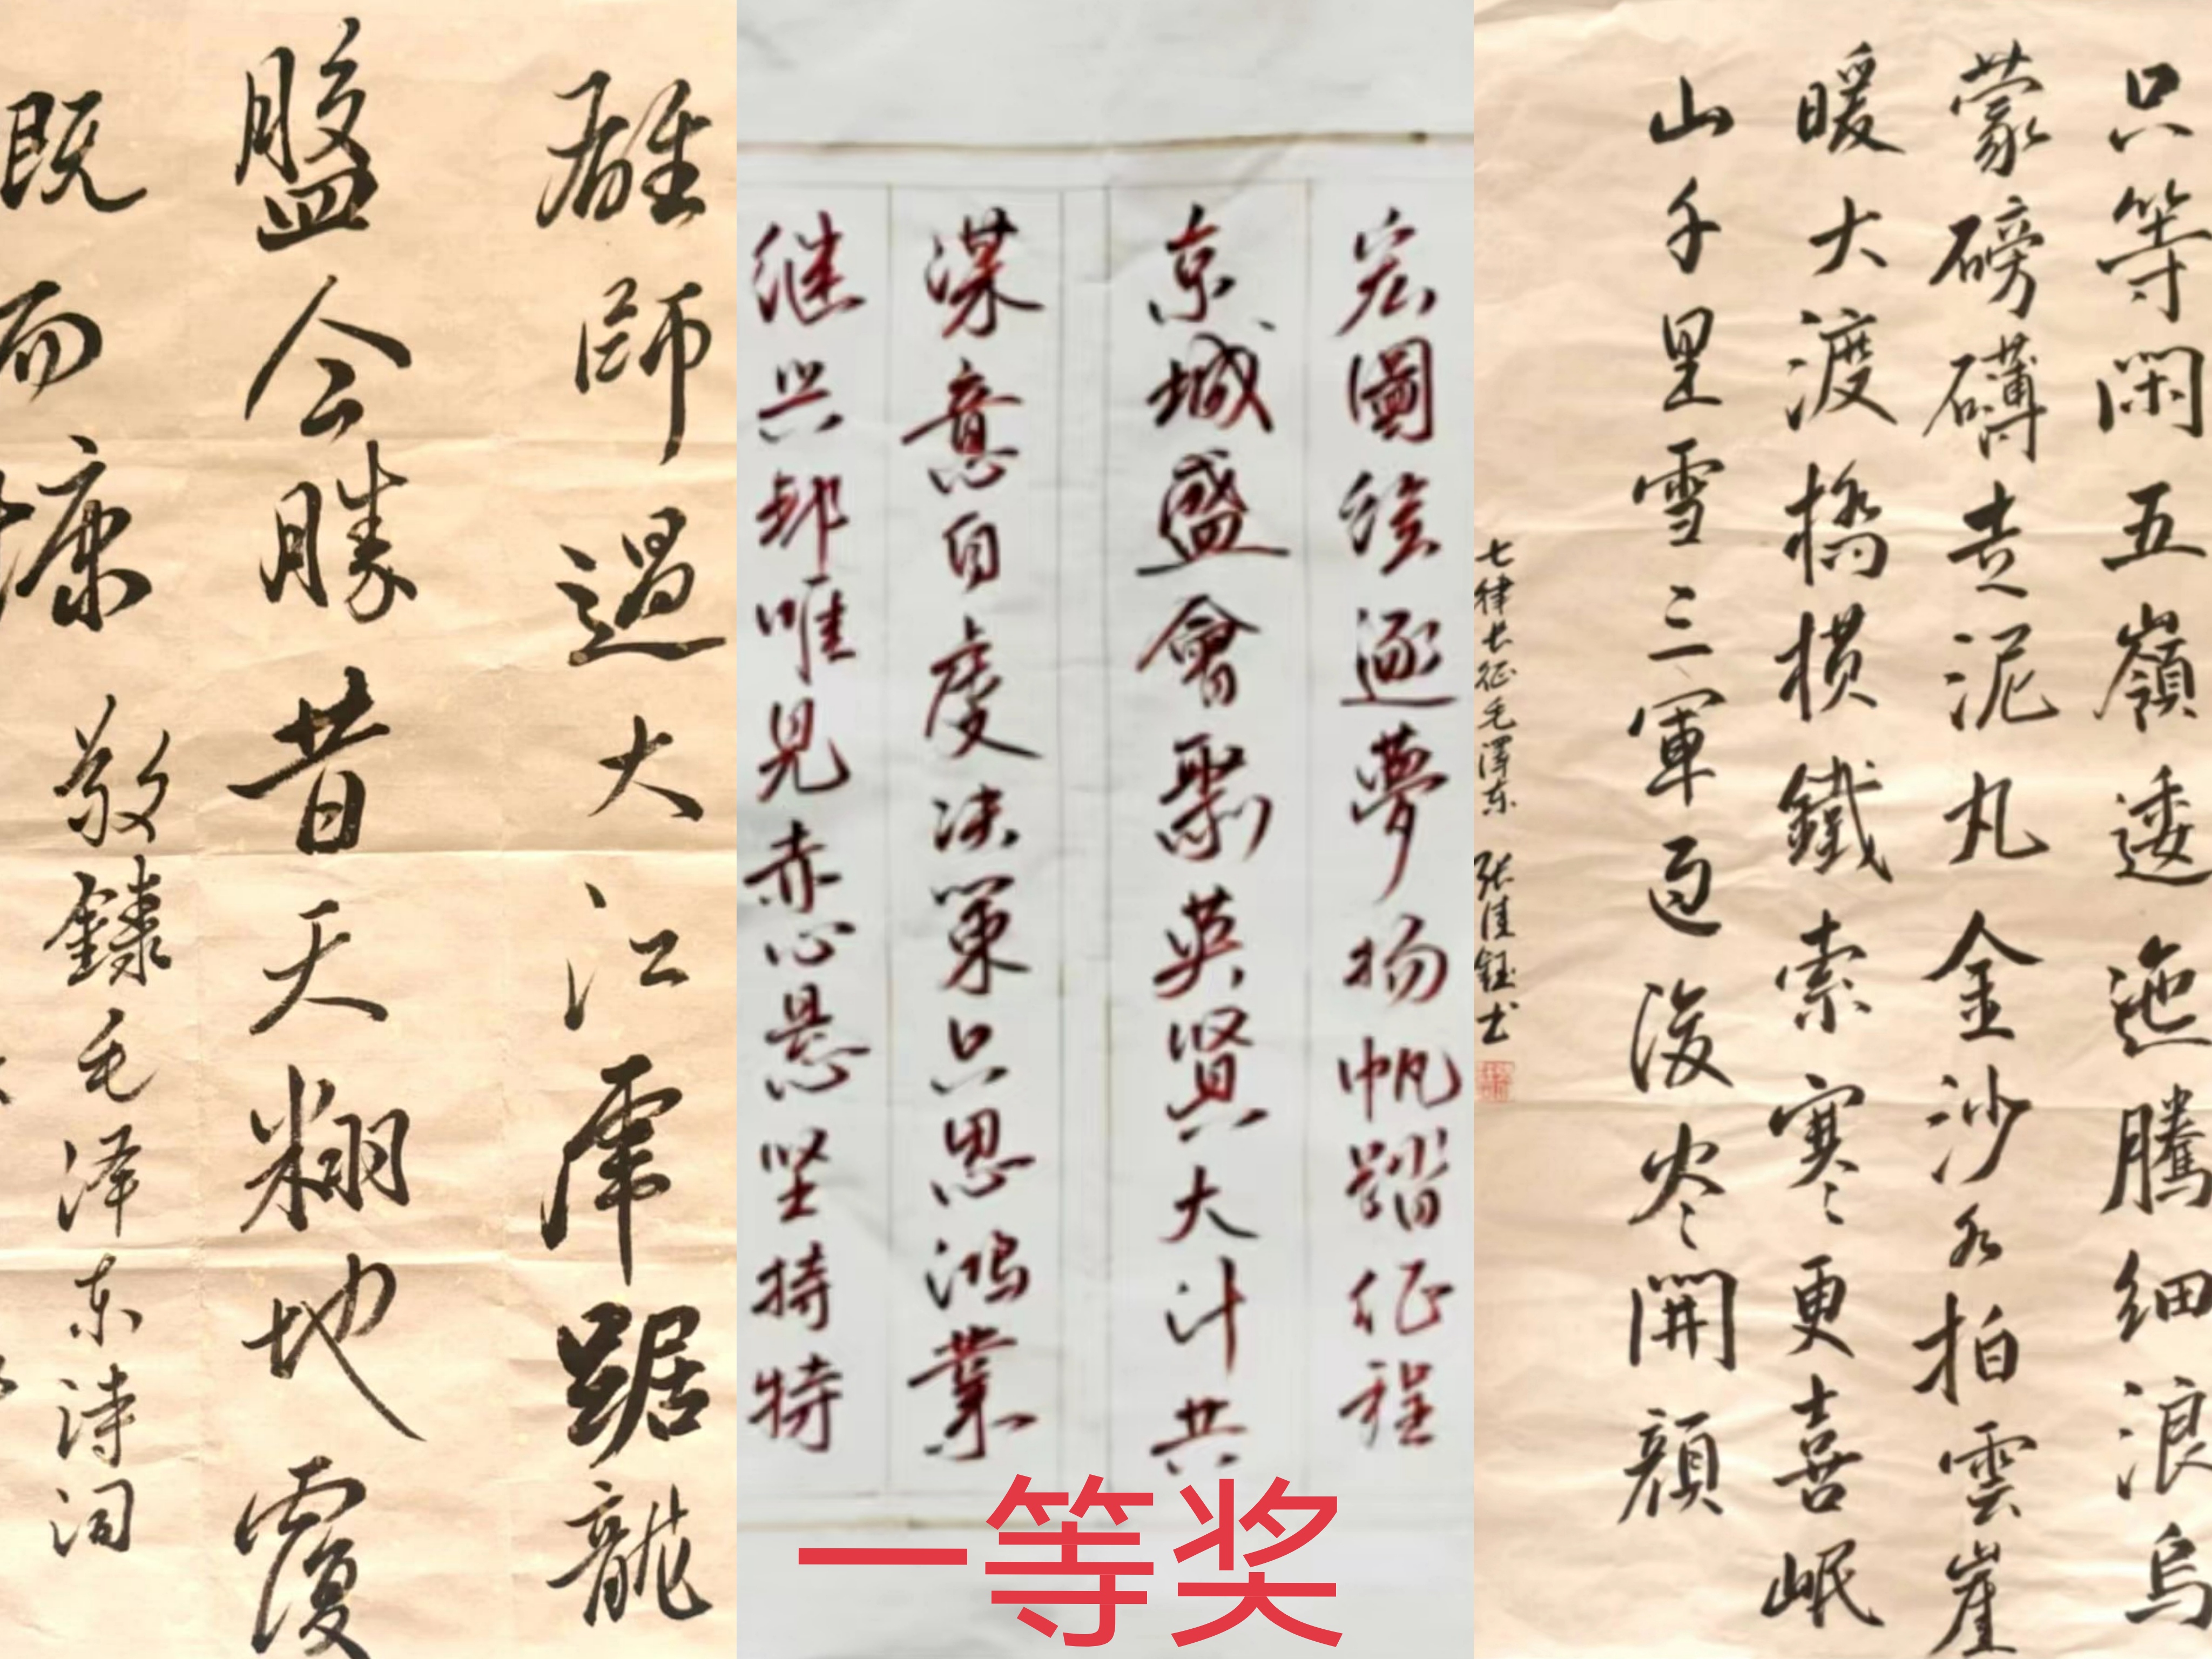 雄師過大江虎踞龍
盤今勝昔天翻地覆
既而慷敬録毛泽东诗词
宏圖绘逐夢扬帆踏征程
京城盛會聚英賢大计共
谋意自虔决策只思鸿業
继兴邦唯见赤心悬坚持特
一等奖
只等閑五嶺逶迤騰細浪烏
蒙磅礴走泥丸金沙水拍雲崖
暖大渡橋横鐵索寒更喜岷
山千里雪三軍過後尽開顔
七律长征毛澤东 张佳钰书